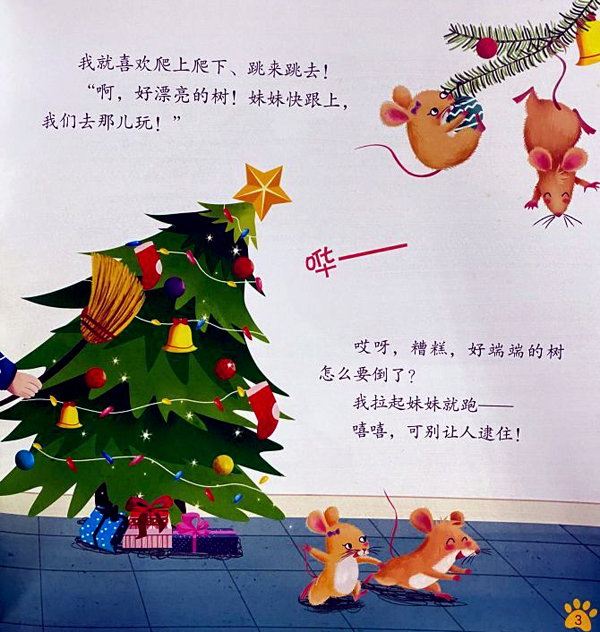 我就喜欢爬上爬下、跳来跳去！
“啊，好漂亮的树！妹妹快跟上，
我们去那儿玩！”
哗——
哎呀，糟糕，好端端的树
怎么要倒了？
我拉起妹妹就跑——
嘻嘻，可别让人逮住！
3